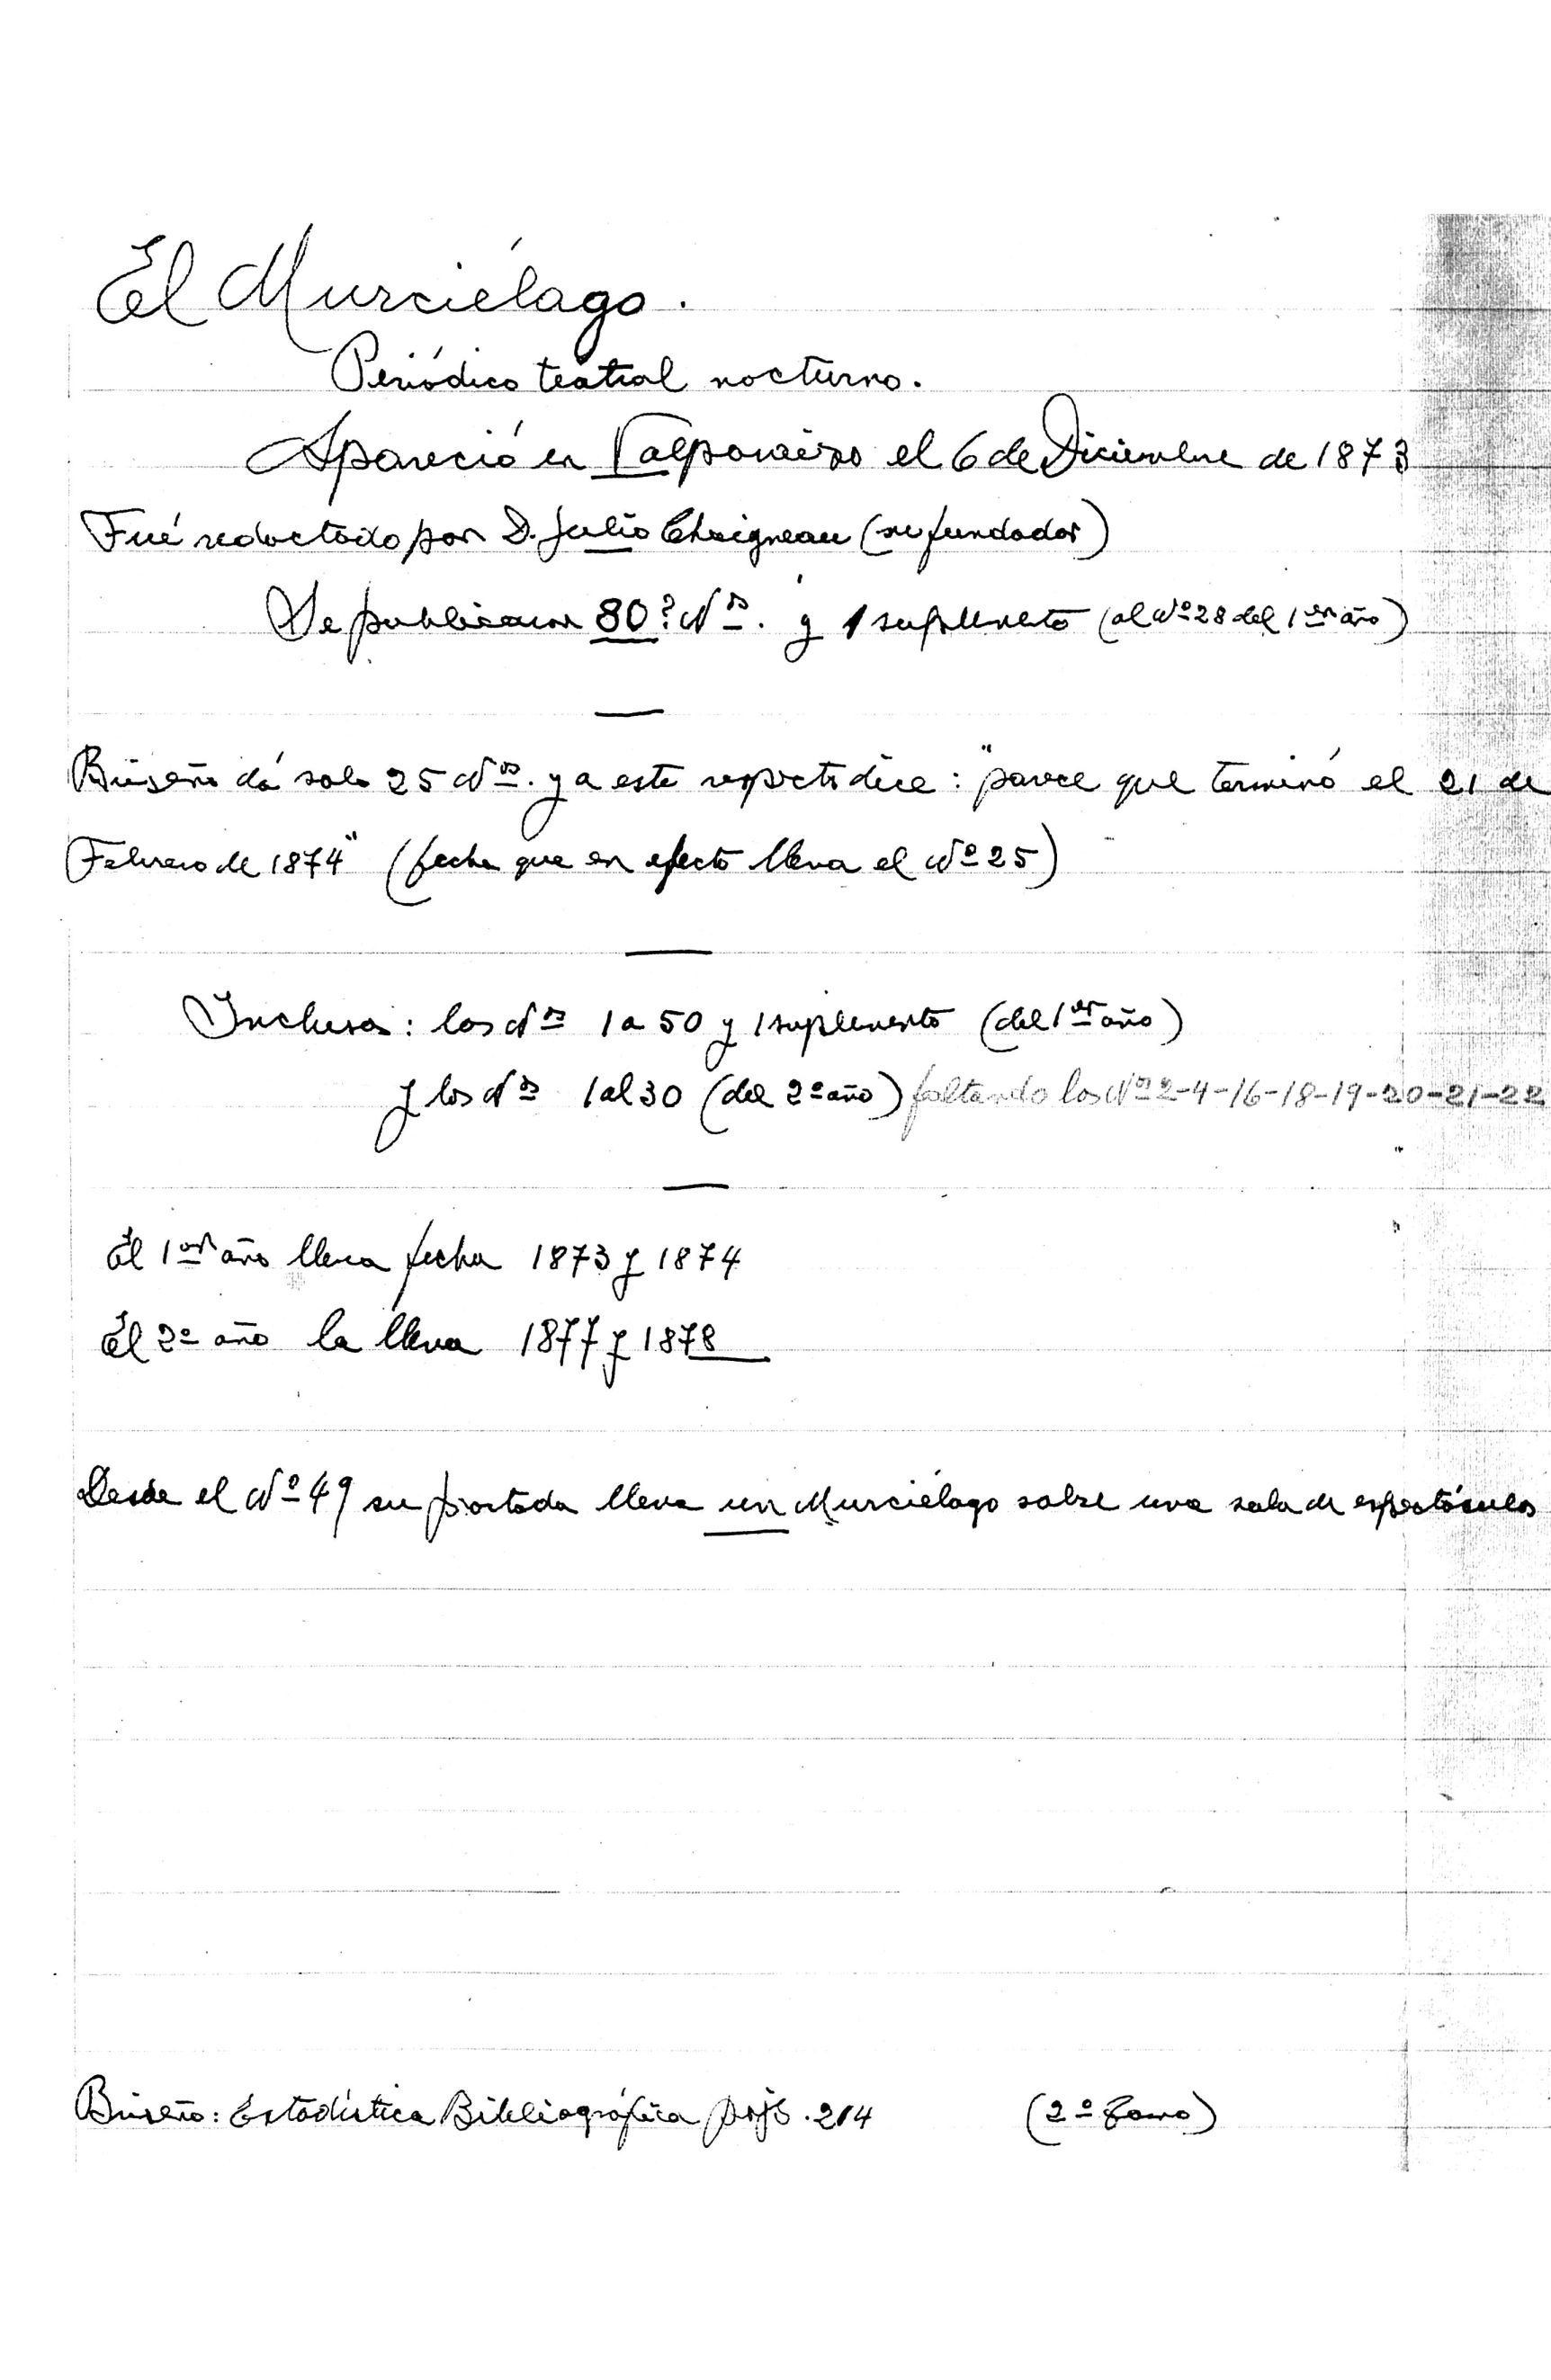 El Murciélago.
Periódico teatral nocturno.
Apareció en Valparaiso el 6 de Diciembre de 1873
Fué redactado por D. Julio Chaigneau (su fundador)
Se publicaron 80? Nos. y 1 suplemento (al Nº 28 del 1er año)
Briseño dá solo 25 Nos. y a este respecto dice: "parece que terminó el 21 de
Febrero de 1874" (fecha que en efecto lleva el Nº 25)
Inclusos: los Nos 1 a 50 y 1 suplemento (del 1er año)
y los Nos 1 al 30 (del 2º año) faltando los Nos 2-4-16-18-19-20-21-22
El 1er año lleva fecha 1873 y 1874
El 2º año la lleva 1877 y 1878
Desde el Nº 49 su portada lleva un Murciélago sobre una sala de espectáculos
Briseño: Estadística Bibliográfica pájs. 214 (2º Tomo)